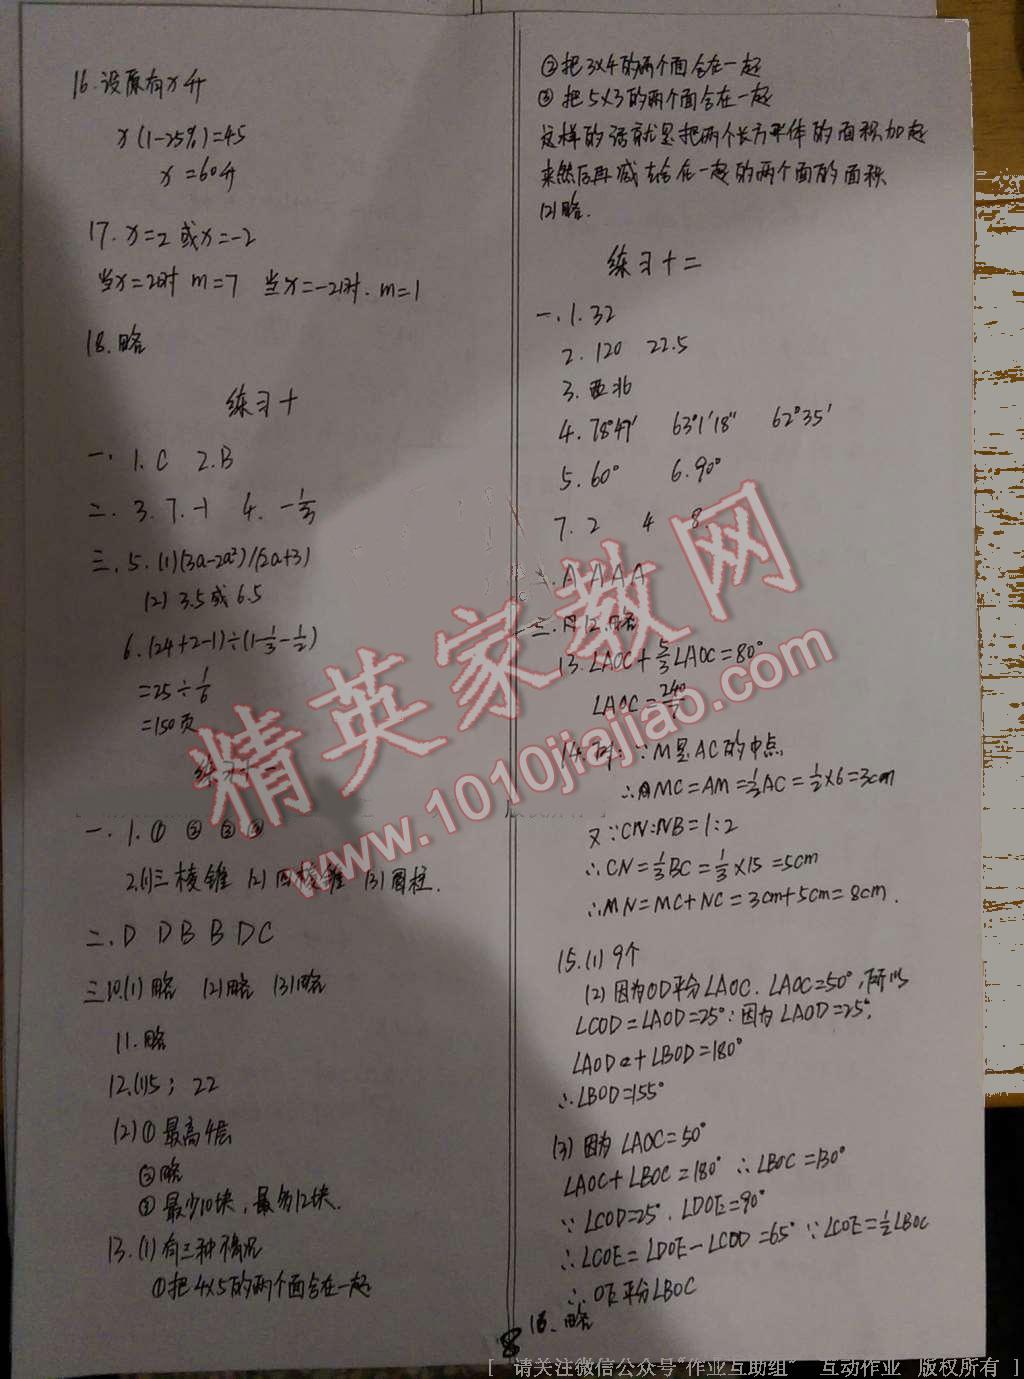 16.设原有x升
x(1-25%)=45
x=60升
17. x=2或x=-2
当x=2时 m=7 当x=-2时. m=1
18.略
练习十
一. 1.C 2.B
二. 3.7.-1 4. -1/3
三. 5. (1)(3a-2a²)/(2a+3)
(2) 3.5或6.5
6. (24+2-1)÷(1-1/3-1/2)
=25÷1/6
=150页
练习十一
一. 1.① ② ③ ④
2.(1)三棱锥 (2)四棱锥 (3)圆柱.
二. D D B B D C
三10.(1)略 (2)略 (3)略
11.略
12.(1)5; 22
(2)①最高4层
②略
③最少10块,最多12块.
13.(1)有三种情况
①把4×5的两个面合在一起
②把3×4的两个面合在一起
③把5×3的两个面合在一起
这样的话就是把两个长方形体的面积加起
来然后再减去合在一起的两个面的面积
(2)略.
练习十二
一.1.32
2.120 22.5
3.西北
4.78°47′ 63°1′18″ 62°35′
5.60° 6.90°
7.2 4 8
A A A A
三. 12.略
13.∠AOC+5/3∠AOC=80°
14. ∵M是AC的中点
∴MC=AM=1/2AC=1/2×6=3cm
又∵CN:NB=1:2
∴CN=1/3BC=1/3×15=5cm
∴MN=MC+NC=3cm+5cm=8cm.
15.(1)9个
(2)因为OD平分∠AOC.∠AOC=50°,所以
∠COD=∠AOD=25°∵因为∠AOD=25°,
∠AOD+∠BOD=180°
∴∠BOD=155°
(3)因为∠AOC=50°
∠AOC+∠BOC=180°∴∠BOC=130°
∵∠COD=25°.∠DOE=90°
∴∠COE=∠DOE-∠COD=65°∵∠COE=1/2∠BOC
∴OE平分∠BOC
16.略
8
精英家教网
www.1010jiajiao.com
[ 请关注微信公众号"作业互助组" 互动作业 版权所有 ]